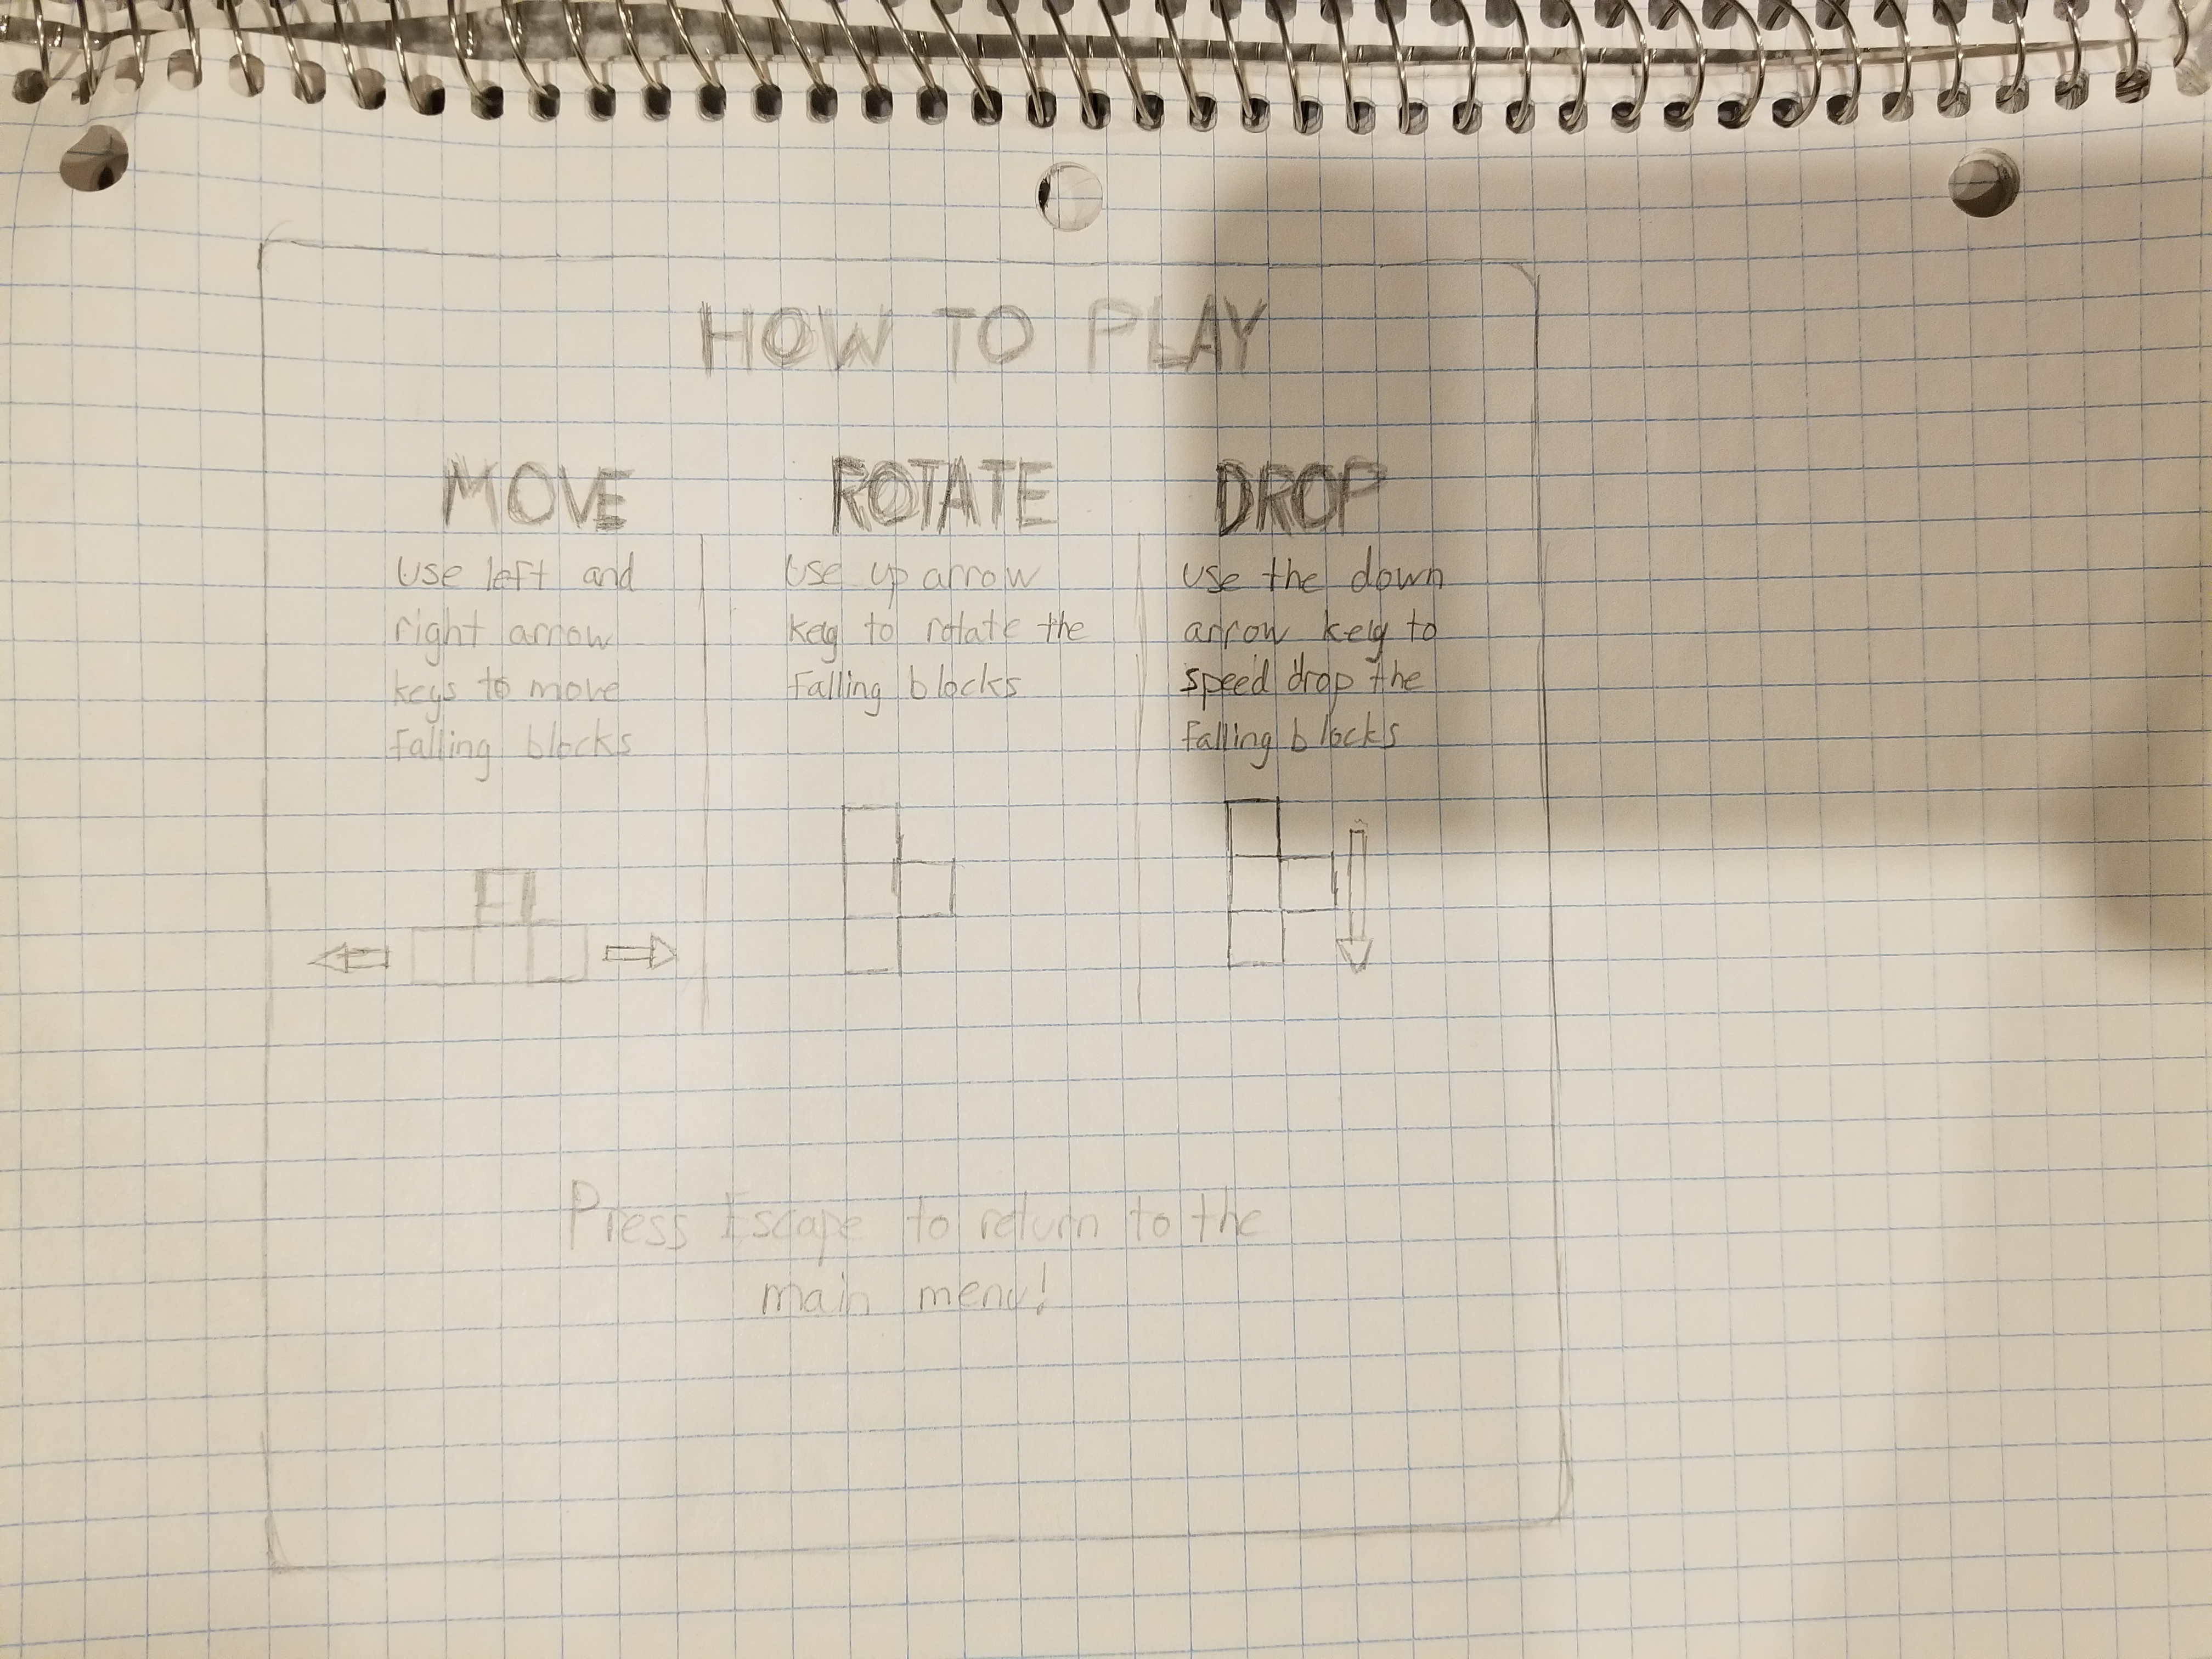 HOW TO PLAY
MOVE
Use left and
right arrow
keys to move
falling blocks
ROTATE
Use up arrow
key to rotate the
falling blocks
DROP
Use the down
arrow key to
speed drop the
falling blocks
Press Escape to return to the
main menu!